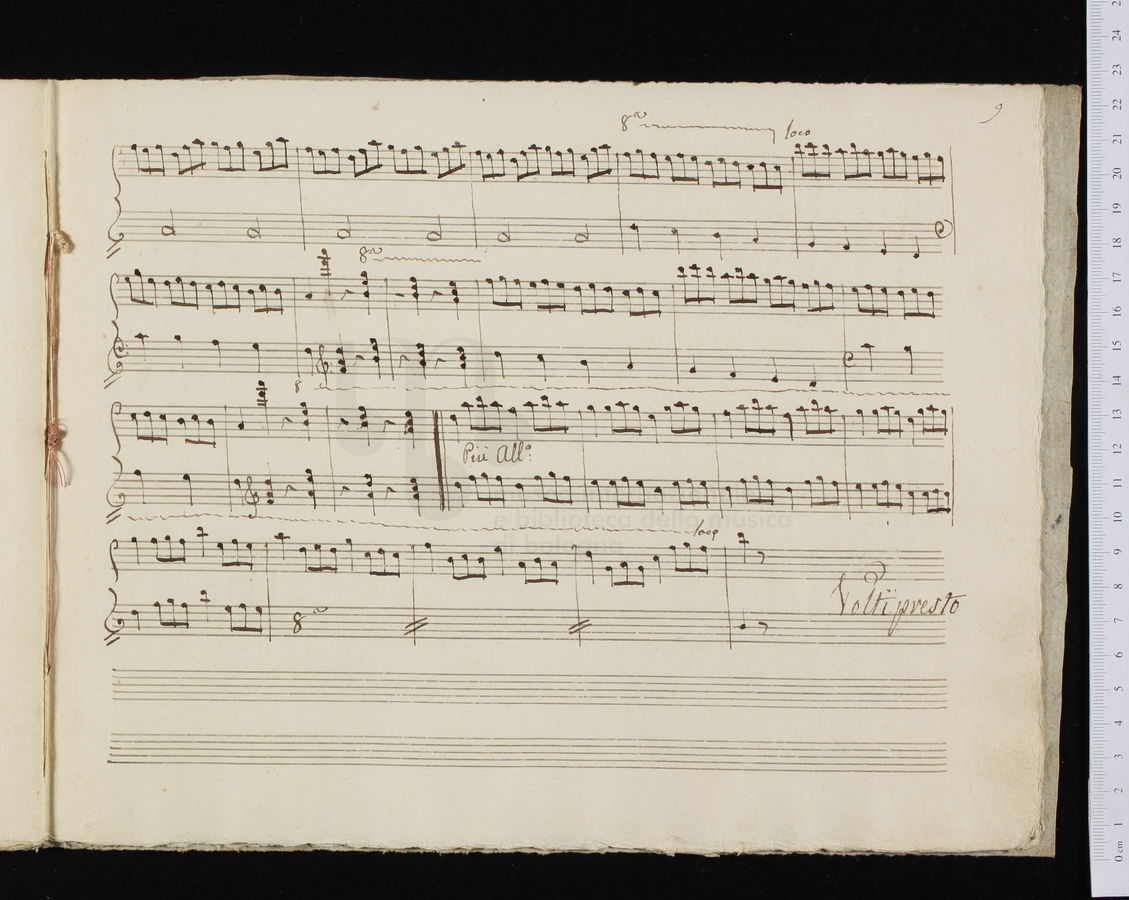 9
8va loco
8va
8
Più Allo:
e biblioteca della musica
di bologna
loco
Volti presto
8va
0 cm 1 2 3 4 5 6 7 8 9 10 11 12 13 14 15 16 17 18 19 20 21 22 23 24